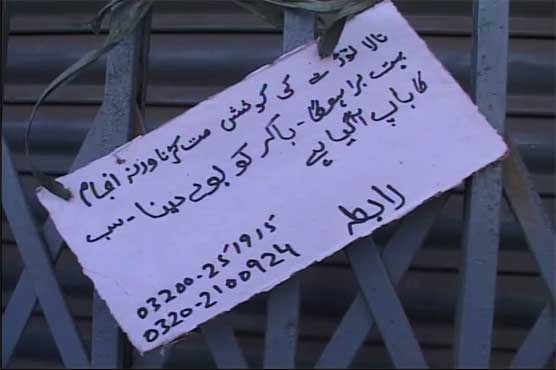 تالا توڑنے کی کوشش مت کرنا ورنہ انجام
بہت برا ہوگا۔ باکر کو بول دینا۔ سب
کا باپ آگیا ہے
رابطہ
03200-251915
0320-2100924